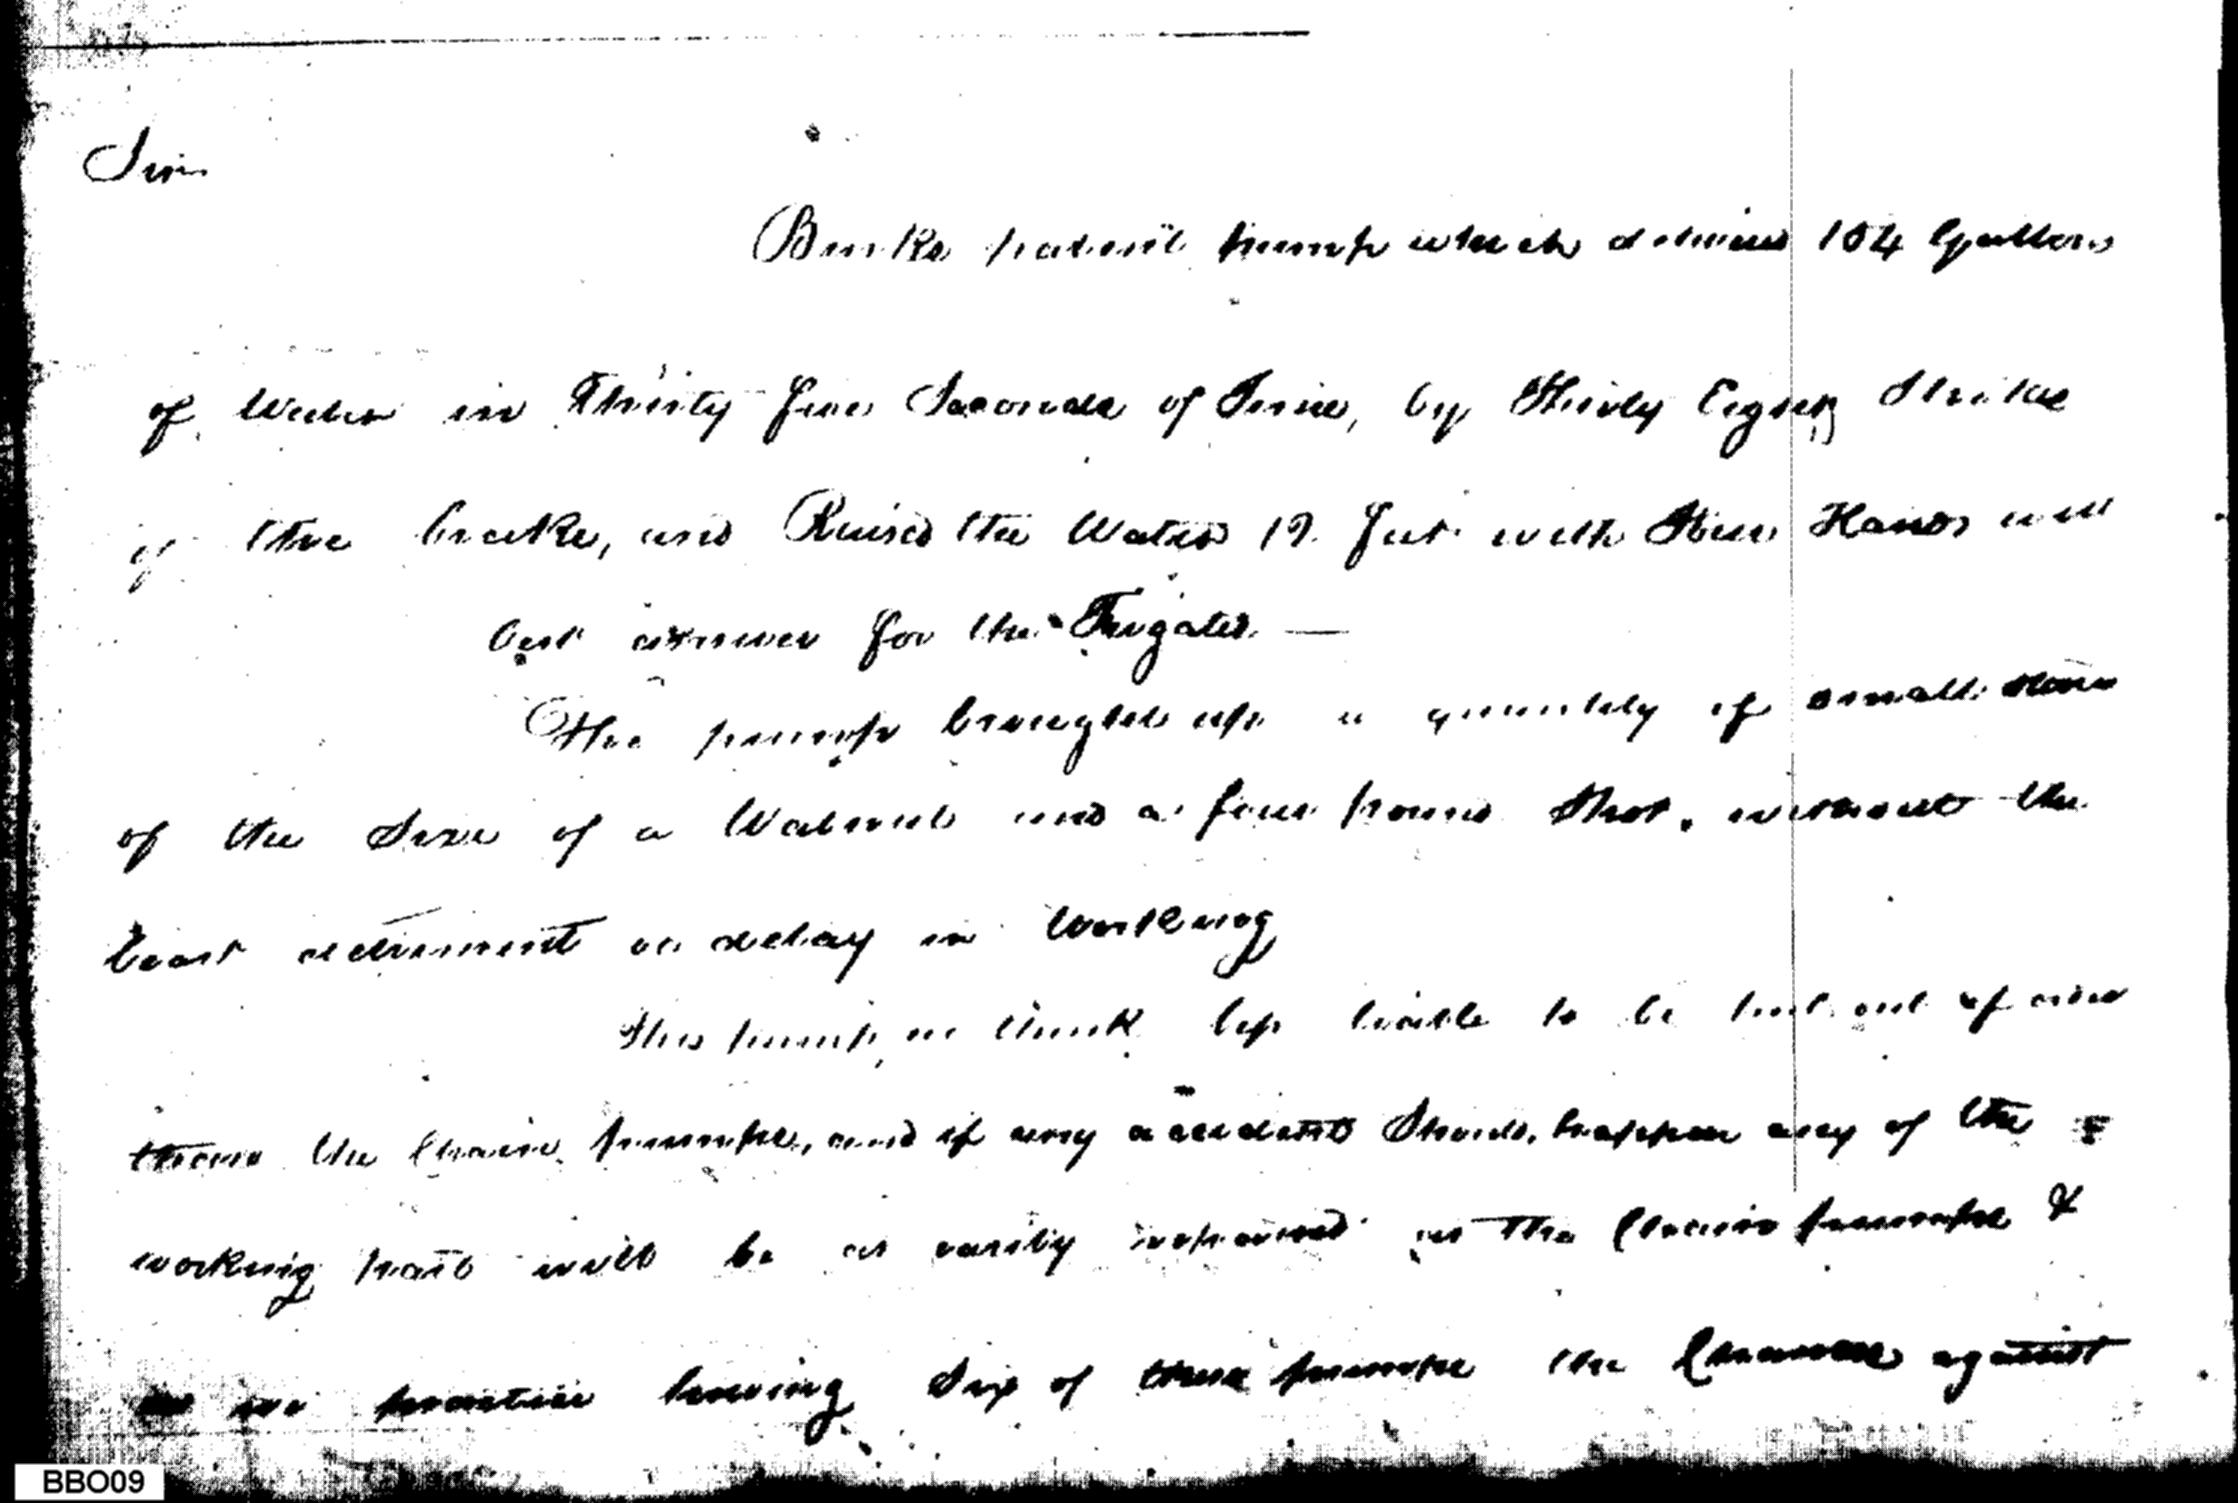 Sir
Binks patent pump which delivers 104 Gallons
of Water in Thirty five Seconds of Time, by Thirty Eight Strokes
of the brake, and Raised the Water 19 feet with Hands will
best answer for the Frigates —
The pump brought up a quantity of small stones
of the Size of a Walnut and a four pound Shot, without the
least detriment or delay in Working
This pump we think less liable to be put out of order
than the Chain pumps, and if any accident Should happen any of the
working parts will be as easily repaired as the Chain pumps &
having Six of these pumps the Chances against
BBO09